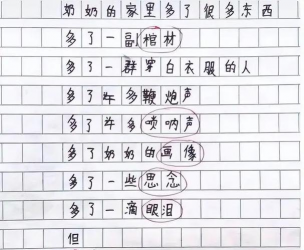 奶奶的家里多了很多东西
多了一副棺材
多了一群穿白衣服的人
多了许多鞭炮声
多了许多唢呐声
多了奶奶的画像
多了一些思念
多了一滴眼泪
但